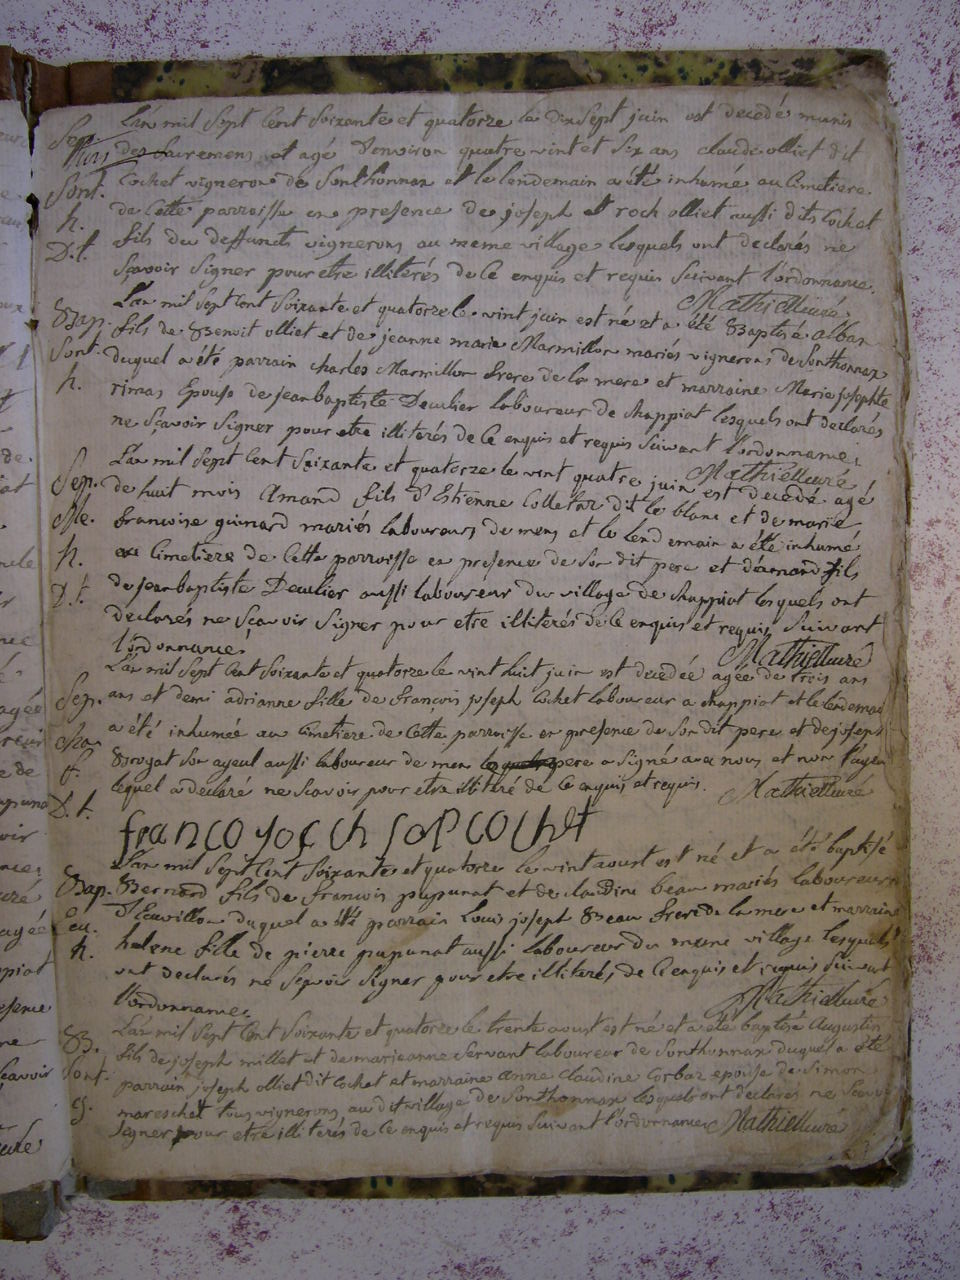 L'an mil sept cent soixante et quatorze le dix sept juin est decedé munis
Sep. des sacremens et agé d'environ quatre vint et six ans claude olliet dit
Sont. Cochet vigneron de Sonthonnax et le lendemain a été inhumé au Cimetiere
h. de cette parroisse en presence de joseph et roch olliet aussi dits Cochet
D.t. fils du deffunct vignerons au meme village lesquels ont declarés ne
sçavoir signer pour etre illiterés de ce enquis et requis suivant l'ordonnance.
Mathieu curé
L'an mil sept cent soixante et quatorze le vint juin est né et a été Baptisé alban
Bap. fils de Benoit olliet et de jeanne marie Marmillon mariés vignerons de Sonthonnax
Sont. duquel a été parrain charles Marmillon frere de la mere et marraine Marie josephte
h. rimas Epouse de jean baptiste Deculier laboureur de chappiat lesquels ont declarés
ne sçavoir signer pour etre illiterés de ce enquis et requis suivant l'ordonnance.
Mathieu curé
L'an mil sept cent soixante et quatorze le vint quatre juin est decedé agé
Sep. de huit mois amand fils d'Etienne Colletaz dit le blanc et de marie
françoise guinard mariés laboureurs de mens et le lendemain a été inhumé
h. au Cimetiere de cette parroisse en presence de son dit pere et d'amand fils
D.t. de jean baptiste Deculier aussi laboureur du village de chappiat lesquels ont
declarés ne sçavoir signer pour etre illiterés de ce enquis et requis suivant
l'ordonnance.
Mathieu curé
L'an mil sept cent soixante et quatorze le vint huit juin est decedée agée de trois ans
Sep. ans et demi adrianne fille de francois joseph Cochet laboureur a chappiat et le lendemai
a été inhumée au cimetiere de cette parroisse en presence de son dit pere et de joseph
f. Brogat son ayeul aussi laboureur de mens pere a signé avec nous et non l'ayeu
D.t. lequel a declaré ne sçavoir pour etre illitéré de ce enquis et requis.
Mathieu curé
franco yoc ch sop cochet
L'an mil sept cent soixante et quatorze le vint aoust est né et a été baptisé
Bap. Bernard fils de francois pupunat et de claudine beau mariés laboureurs
d'Euvillon duquel a été parrain Louis joseph Beau frere de la mere et marraine
h. helene fille de pierre pupunat aussi laboureur du meme village lesquels
ont declarés ne sçavoir signer pour etre illiterés de ce enquis et requis suivant
l'ordonnance.
Mathieu curé
L'an mil sept cent soixante et quatorze le trente aoust est né et a été baptisé Augustin
B. fils de joseph millet et de marie anne servant laboureur de Sonthonnax duquel a été
Sont. parrain joseph olliet dit Cochet et marraine anne claudine Corbaz epouse de Simon
g. mareschet tous vignerons au dit village de Sonthonnax lesquels ont declarés ne sçavoir
signer pour etre illiterés de ce enquis et requis suivant l'ordonnance Mathieu curé